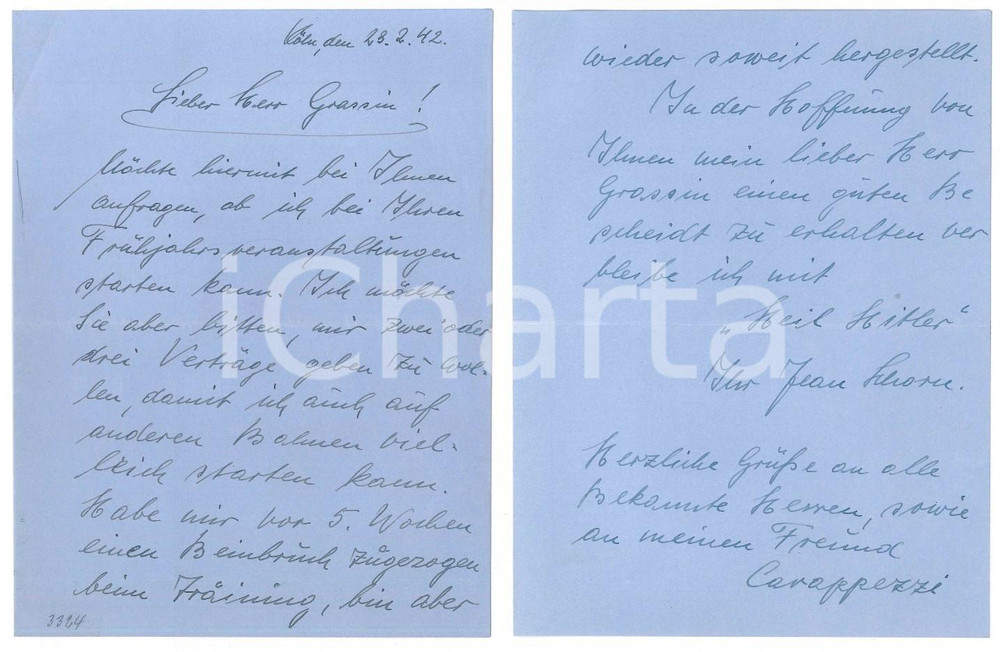 Köln, den 23.2.42.
Lieber Herr Grassin!
Möchte hiermit bei Ihnen
anfragen, ob ich bei Ihren
Frühjahrsveranstaltungen
starten kann. Ich möchte
Sie aber bitten, mir zwei oder
drei Verträge geben zu wol-
len, damit ich auch auf
anderen Bahnen viel-
leich starten kann.
Habe mir vor 5. Wochen
einen Beinbruch zugezogen
beim Träining, bin aber
3324
wieder soweit hergestellt.
In der Hoffnung von
Ihnen mein lieber Herr
Grassin einen guten Be
scheidt zu erhalten ver
bleibe ich mit
„Heil Hitler"
Ihr Jean Schorn.
Herzliche Grüße an alle
Bekannte Herren, sowie
an meinen Freund
Carappezzi
iCharta